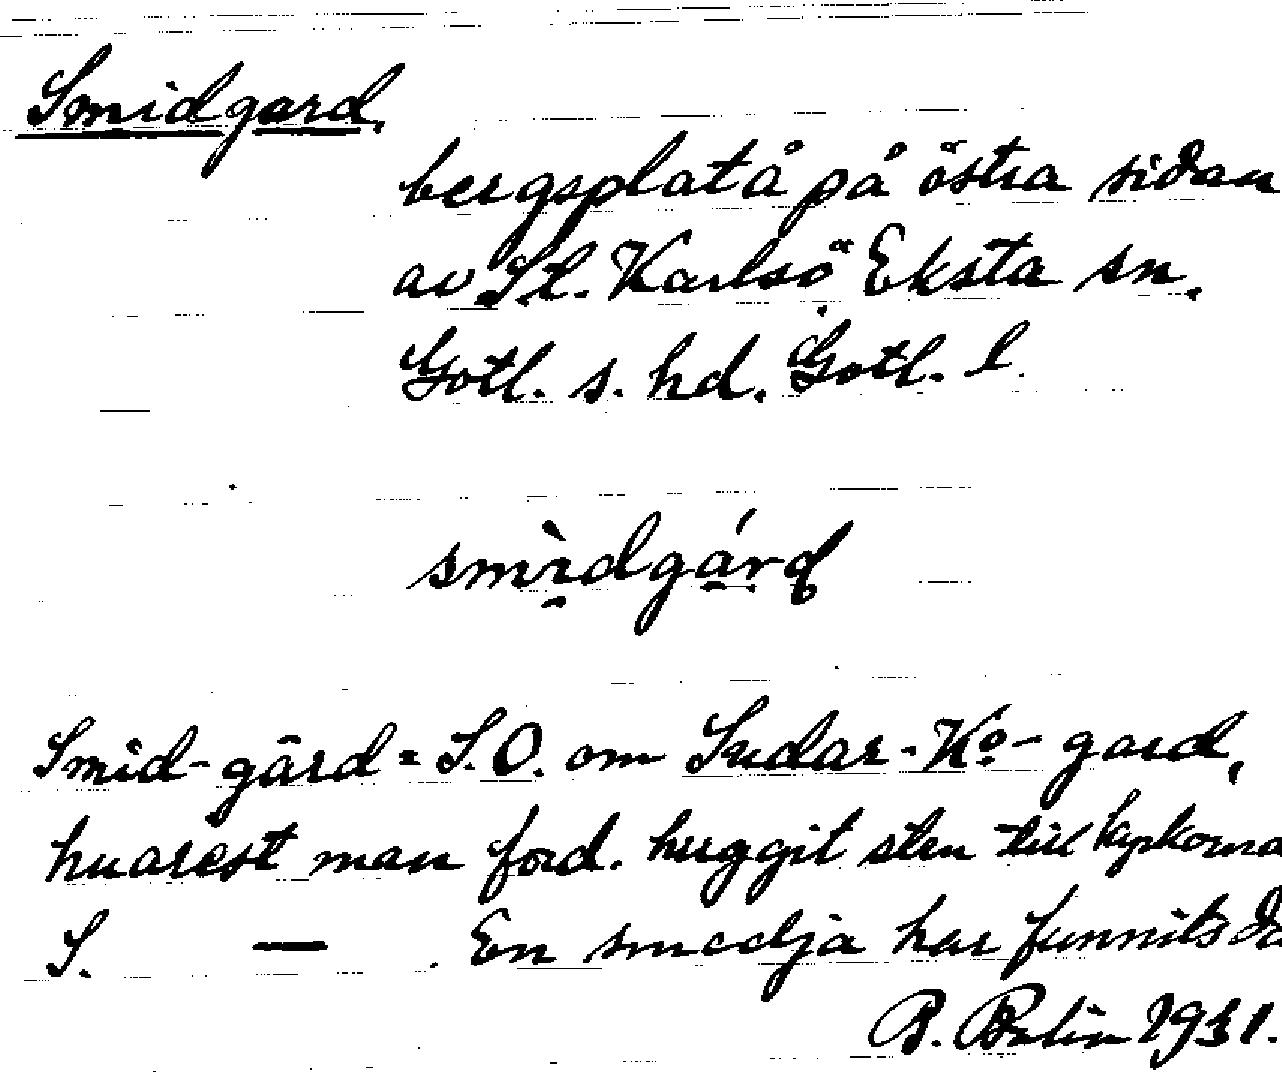 Smidgard,
bergsplatå på östra sidan
av St. Karlsö Eksta sn.
Gotl. s. hd. Gotl. l.
smìdgárd
Smid-gård = S.O. om Sudar-Ko-gard,
huarest man ford. huggit sten till kyrkorna
S. — . En smedja har funnits då
B. Bolin 1931.